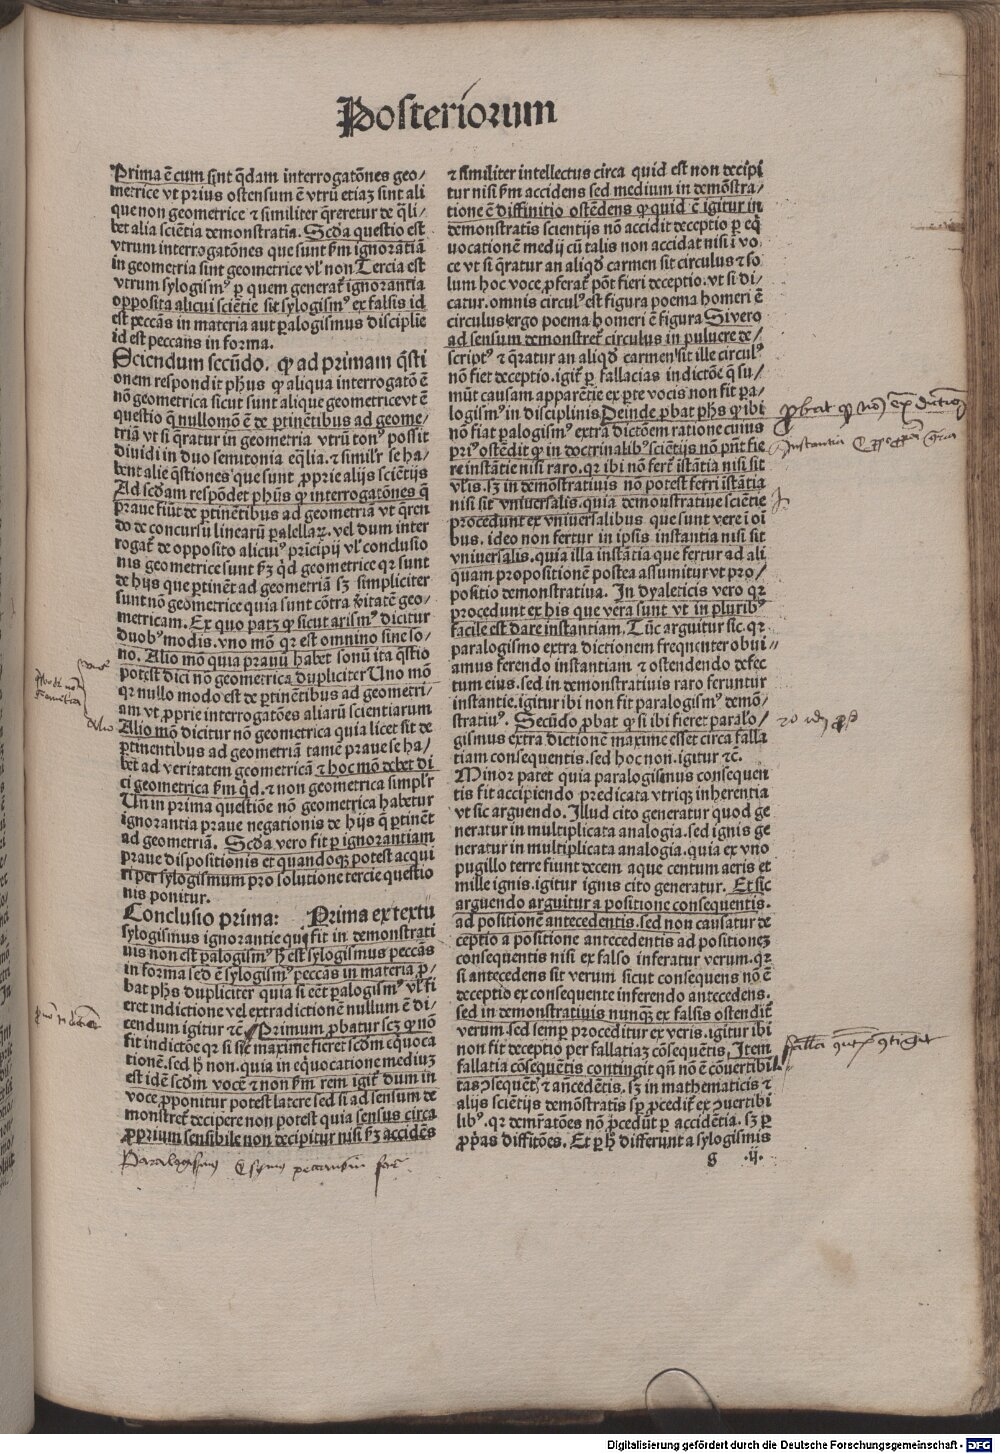 Posteriorum
Prima ē cum sint q̄dam interrogatōnes geo/
metrice vt prius ostensum ē vtrū etiaꝫ sint ali
que non geometrice ⁊ similiter q̄reretur de q̄li/
bet alia sciētia demonstratia. Scd̄a questio est
vtrum interrogatōnes que sunt ẜm ignorātiā
in geometria sint geometrice vl̓ non Tercia est
vtrum sylogismꝰ ꝑ quem generat̄ ignorantia
opposita alicui sciētie sit sylogismꝰ ex falsis id
est peccās in materia aut ꝑalogismus disciplīe
id est peccans in forma.
Sciendum secūdo. ꝙ ad primam q̄sti
onem respondit ph̄us ꝙ aliqua interrogatō ē
nō geometrica sicut sunt alique geometrice vt ē
questio q̄ nullomō ē de ꝑtinētibus ad geome/
triā vt si q̄ratur in geometria vtrū tonꝰ possit
diuidi in duo semitonia eq̄lia. ⁊ simil̓r se ha/
bent alie q̄stiones que sunt ꝓprie alijs sciētijs
Ad scd̄am respōdet ph̄us ꝙ interrogatōnes q̄
praue fiūt de ꝑtinētibus ad geometriā vt q̄ren
do de concursu linearū ꝑalellaꝝ. vel dum inter
rogat̄ de opposito alicuiꝰ pricipij vl̓ conclusio
nis geometrice sunt ẜꝫ q̄d geometrice qꝛ sunt
de hijs que ꝑtinēt ad geometriā sꝫ simpliciter
sunt nō geometrice quia sunt cōtra v̓itatē geo/
metricam. Ex quo patꝫ ꝙ sicut arismꝰ dicitur
duobꝰ modis. vno mō qꝛ est omnino sine so/
no. Alio mō quia prauū habet sonū ita q̄stio
potest dici nō geometrica dupliciter Uno mō
qꝛ nullo modo est de ꝑtinētibus ad geometri/
am vt ꝓprie interrogatōes aliarū scientiarum
Alio mō dicitur nō geometrica quia licet sit de
ꝑtinentibus ad geometriā tamē praue se ha/
bet ad veritatem geometricā ⁊ hoc mō debet di
ci geometrica ẜm q̄d. ⁊ non geometrica simpl̓r
Un in prima questiōe nō geometrica habetur
ignorantia praue negationis de hijs q̄ ꝑtinēt
ad geometriā. Scd̄a vero fit ꝑ ignorantiam
praue dispositionis et quandoqꝫ potest acqui
ri per sylogismum pro solutione tercie questio
nis ponitur.
Conclusio prima: Prima ex textu
sylogismus ignorantie qui fit in demonstrati
uis non est ꝑalogismꝰ h̄ est sylogismus peccās
in forma sed ē sylogismꝰ peccās in materia ꝓ/
bat ph̄s dupliciter quia si eēt ꝑalogismꝰ vl̓ fi
eret indictione vel extra dictionem nullum ē di/
cendum igitur ⁊c̄ Primum ꝓbatur scꝫ ꝙ nō
fit indictōe qꝛ si sic maxime fieret scd̄m eq̄uoca
tionē. sed h̄ non. quia in eq̄uocatione mediuꝫ
est idē scd̄m vocē ⁊ non ẜm rem igit̄ dum in
voce ꝓponitur potest latere sed si ad sensum de
monstret̄ decipere non potest quia sensus circa
ꝓprium sensibile non decipitur nisi ẜꝫ accidēs
⁊ similiter intellectus circa quid est non decipi
tur nisi ẜm accidens sed medium in demōstra/
tione ē diffinitio ostēdens ꝙ quid ē igitur in
demonstratis scientijs nō accidit deceptio ꝑ eq̄
uocationē medij cū talis non accidat nisi i vo
ce vt si q̄ratur an aliqd̄ carmen sit circulus ⁊ so
lum hoc voce ꝓferat̄ pōt fieri deceptio. vt si di/
catur. omnis circulꝰ est figura poema homeri ē
circulus ergo poema homeri ē figura Si vero
ad sensum demonstret̄ circulus in puluere de/
scriptꝰ ⁊ q̄ratur an aliqd̄ carmen sit ille circulꝰ
nō fiet deceptio. igit̄ ꝑ fallacias in dictōe q̄ su/
mūt causam apparētie ex ꝑte vocis non fit pa/
logismꝰ in disciplinis Deinde ꝓbat ph̄s ꝙ ibi
nō fiat ꝑalogismꝰ extra dictōem ratione cuius
priꝰ ostēdit ꝙ in doctrinalibꝰ sciētijs nō pn̄t fie
re instātie nisi raro. qꝛ ibi nō fert̄ istātia nisi sit
vl̓is. sꝫ in demōstratiuis nō potest ferri istātia
nisi sit vniuersalis. quia demonstratiue sciētie
procedunt ex vniuersalibus que sunt vere i oī
bus. ideo non fertur in ipsis instantia nisi sit
vniuersalis. quia illa instātia que fertur ad ali
quam propositionē postea assumitur vt pro/
positio demonstratiua. In dyaleticis vero qꝛ
procedunt ex his que vera sunt vt in pluribꝰ
facile est dare instantiam. Tūc arguitur sic. qꝛ
paralogismo extra dictionem frequenter obui/
amus ferendo instantiam ⁊ ostendendo defec
tum eius. sed in demonstratiuis raro feruntur
instantie. igitur ibi non fit paralogismꝰ demō/
stratiuꝰ. Secūdo ꝓbat ꝙ si ibi fieret paralo/
gismus extra dictionē maxime esset circa falla
tiam consequentis. sed hoc non. igitur ⁊c̄.
Minor patet quia paralogismus consequen
tis fit accipiendo predicata vtriqꝫ inherentia
vt sic arguendo. Illud cito generatur quod ge
neratur in multiplicata analogia. sed ignis ge
neratur in multiplicata analogia. quia ex vno
pugillo terre fiunt decem aque centum aeris et
mille ignis. igitur ignis cito generatur. Et sic
arguendo arguitur a positione consequentis.
ad positionē antecedentis. sed non causatur de
ceptio a positione antecedentis ad positioneꝫ
consequentis nisi ex falso inferatur verum. qꝛ
si antecedens sit verum sicut consequens nō ē
deceptio ex consequente inferendo antecedens.
sed in demonstratiuis nunqꝫ ex falsis ostendit̄
verum. sed semꝑ proceditur ex veris. igitur ibi
non fit deceptio per fallatiaꝫ cōsequētis. Item
fallatia cōsequētis contingit qn̄ nō ē cōuertibil̓
tas ↄsequētꝭ ⁊ an̄cedētis. sꝫ in mathematicis ⁊
alijs sciētijs demōstratis sꝑ ꝓcedit̄ ex ↄuertibi
libꝰ. qꝛ demr̄atōes nō ꝓcedūt ꝑ accidētia. sꝫ ꝑ
ꝓpͥas diffitōes. Et ꝑ h̄ differunt a sylogismis
g .ij.
ꝓbat ꝙ nō ex dictiōe
Instantia
Alio